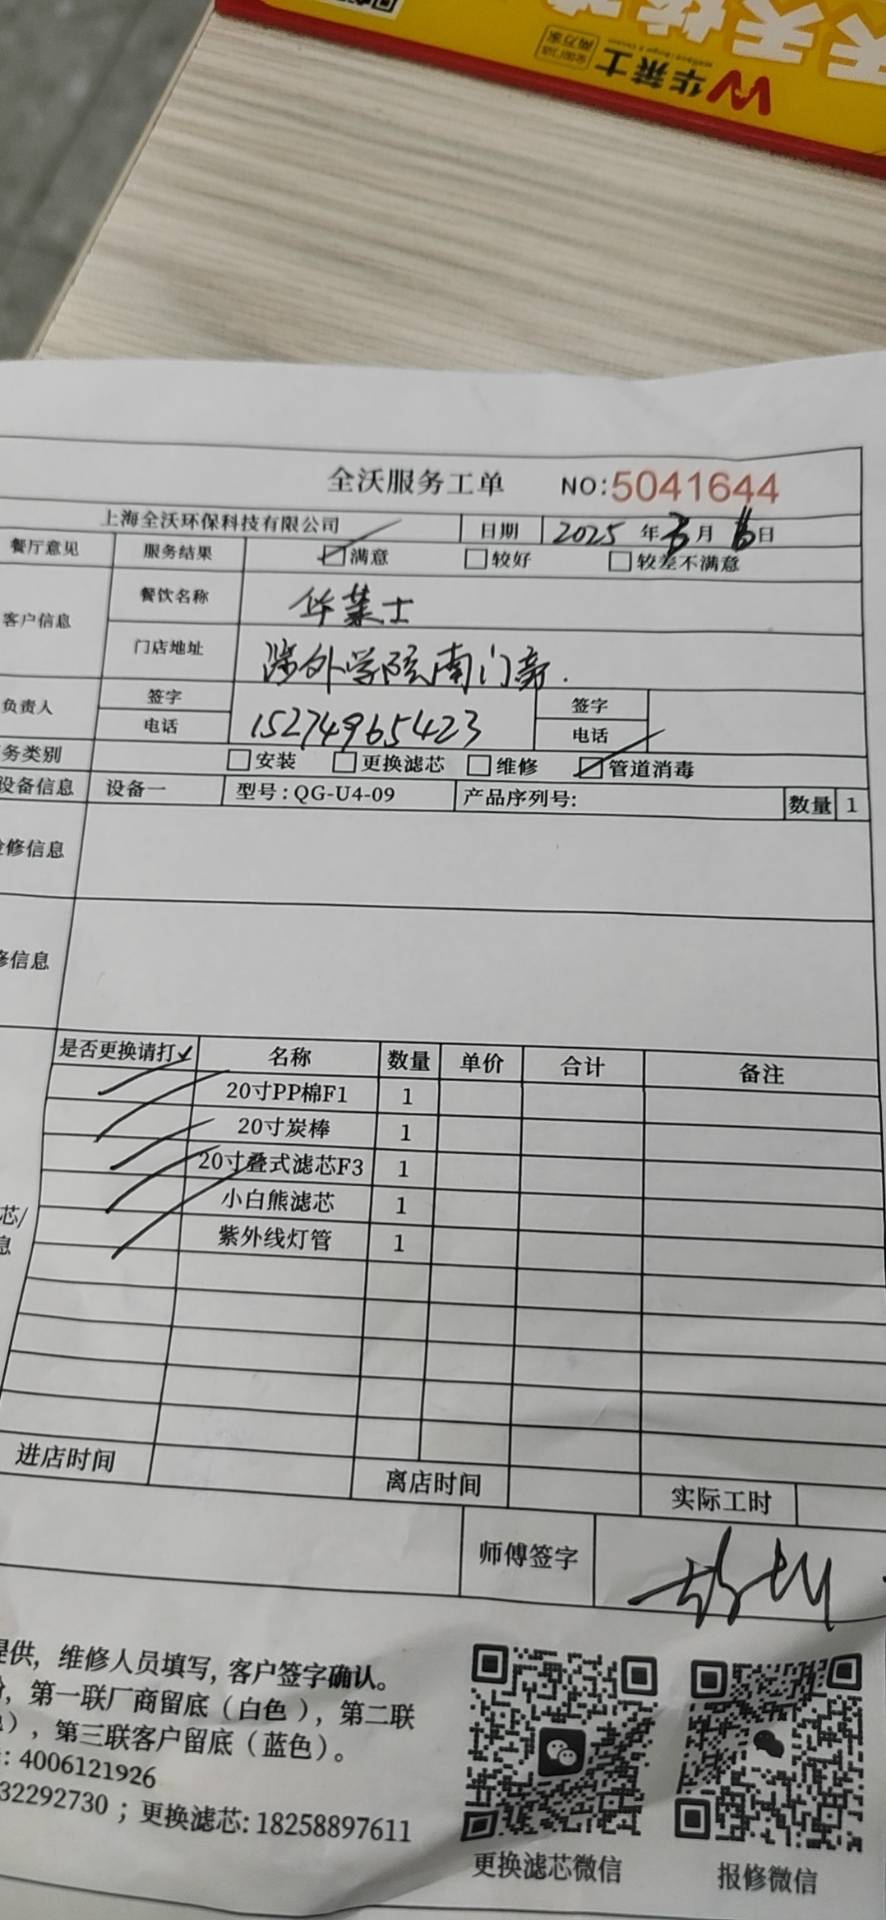 华莱士
全国门店
两万家
全沃服务工单 NO:5041644
上海全沃环保科技有限公司 日期 2025 年 月 日
餐厅意见 服务结果 满意 较好 较差不满意
客户信息 餐饮名称 华莱士
门店地址 涉外学院南门旁.
负责人 签字 签字
电话 15274965423 电话
务类别 安装 更换滤芯 维修 管道消毒
设备信息 设备一 型号:QG-U4-09 产品序列号: 数量 1
修信息
修信息
是否更换请打✓ 名称 数量 单价 合计 备注
20寸PP棉F1 1
20寸炭棒 1
20寸叠式滤芯F3 1
小白熊滤芯 1
紫外线灯管 1
芯/
息
进店时间 离店时间 实际工时
师傅签字
提供, 维修人员填写, 客户签字确认。
, 第一联厂商留底（白色）, 第二联
）, 第三联客户留底（蓝色）。
: 4006121926
32292730 ; 更换滤芯: 18258897611
更换滤芯微信 报修微信